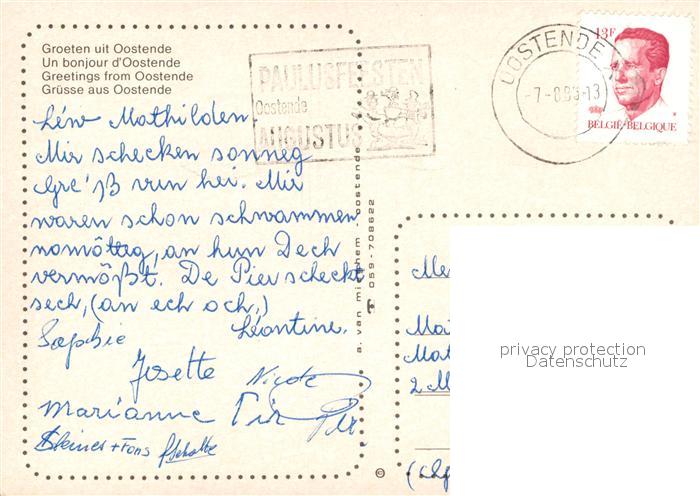 Groeten uit Oostende
Un bonjour d'Oostende
Greetings from Oostende
Grüsse aus Oostende
PAULUSFEESTEN
Oostende
AUGUSTUS
OOSTENDE
-7-8.8
-13
13F
BELGIË-BELGIQUE
Léiw Mathilden,
Mir schecken sonneg
Gre'ß vun hei. Mir
waren schon schwammen
nomôtteg, an hun Dech
vermößt. De Pier scheckt
sech, (an ech och,)
Léontine.
Sophie
Josette Nicole
Marianne Pir
+ Fons
a. van mieghem - oostende
059-708622
Me
Ma
Mat
2 M
privacy protection
Datenschutz
©